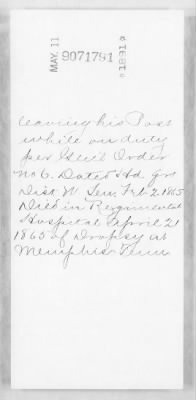 MAY. 11
9071791
*1891*
leaving his Post
while on duty
per Genl Order
No 6. Dated Hd Qrs
Dist W Ten. Feb 2 1865
Died in Regimental
Hospital April 21
1865 of Dropsy at
Memphis Tenn